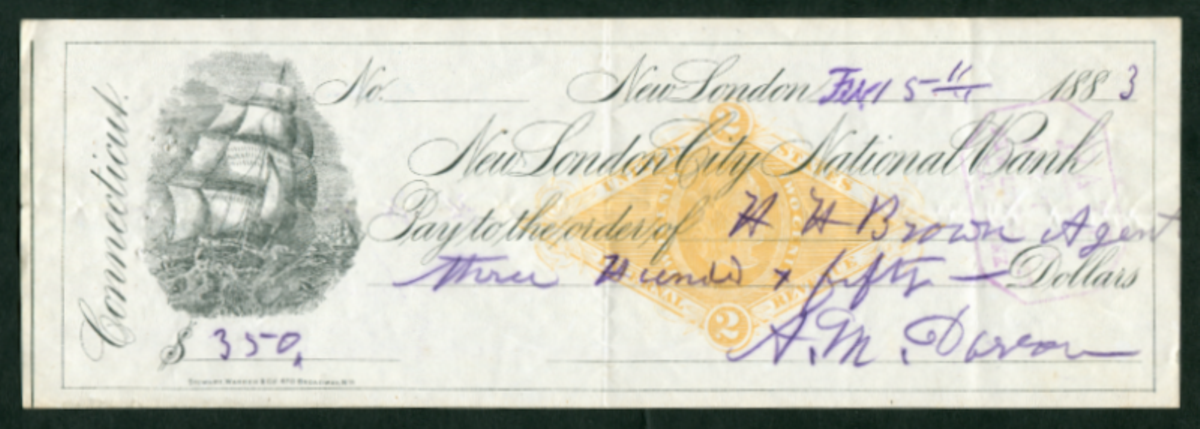 Connecticut.
No. New London Feb 5th 1883
New London City National Bank
Pay to the order of H H Brown Agent
three Hundd & fifty — Dollars
$ 350.
A. M.
2
UNITED STATES
TWO CENTS
INTERNAL REVENUE
2